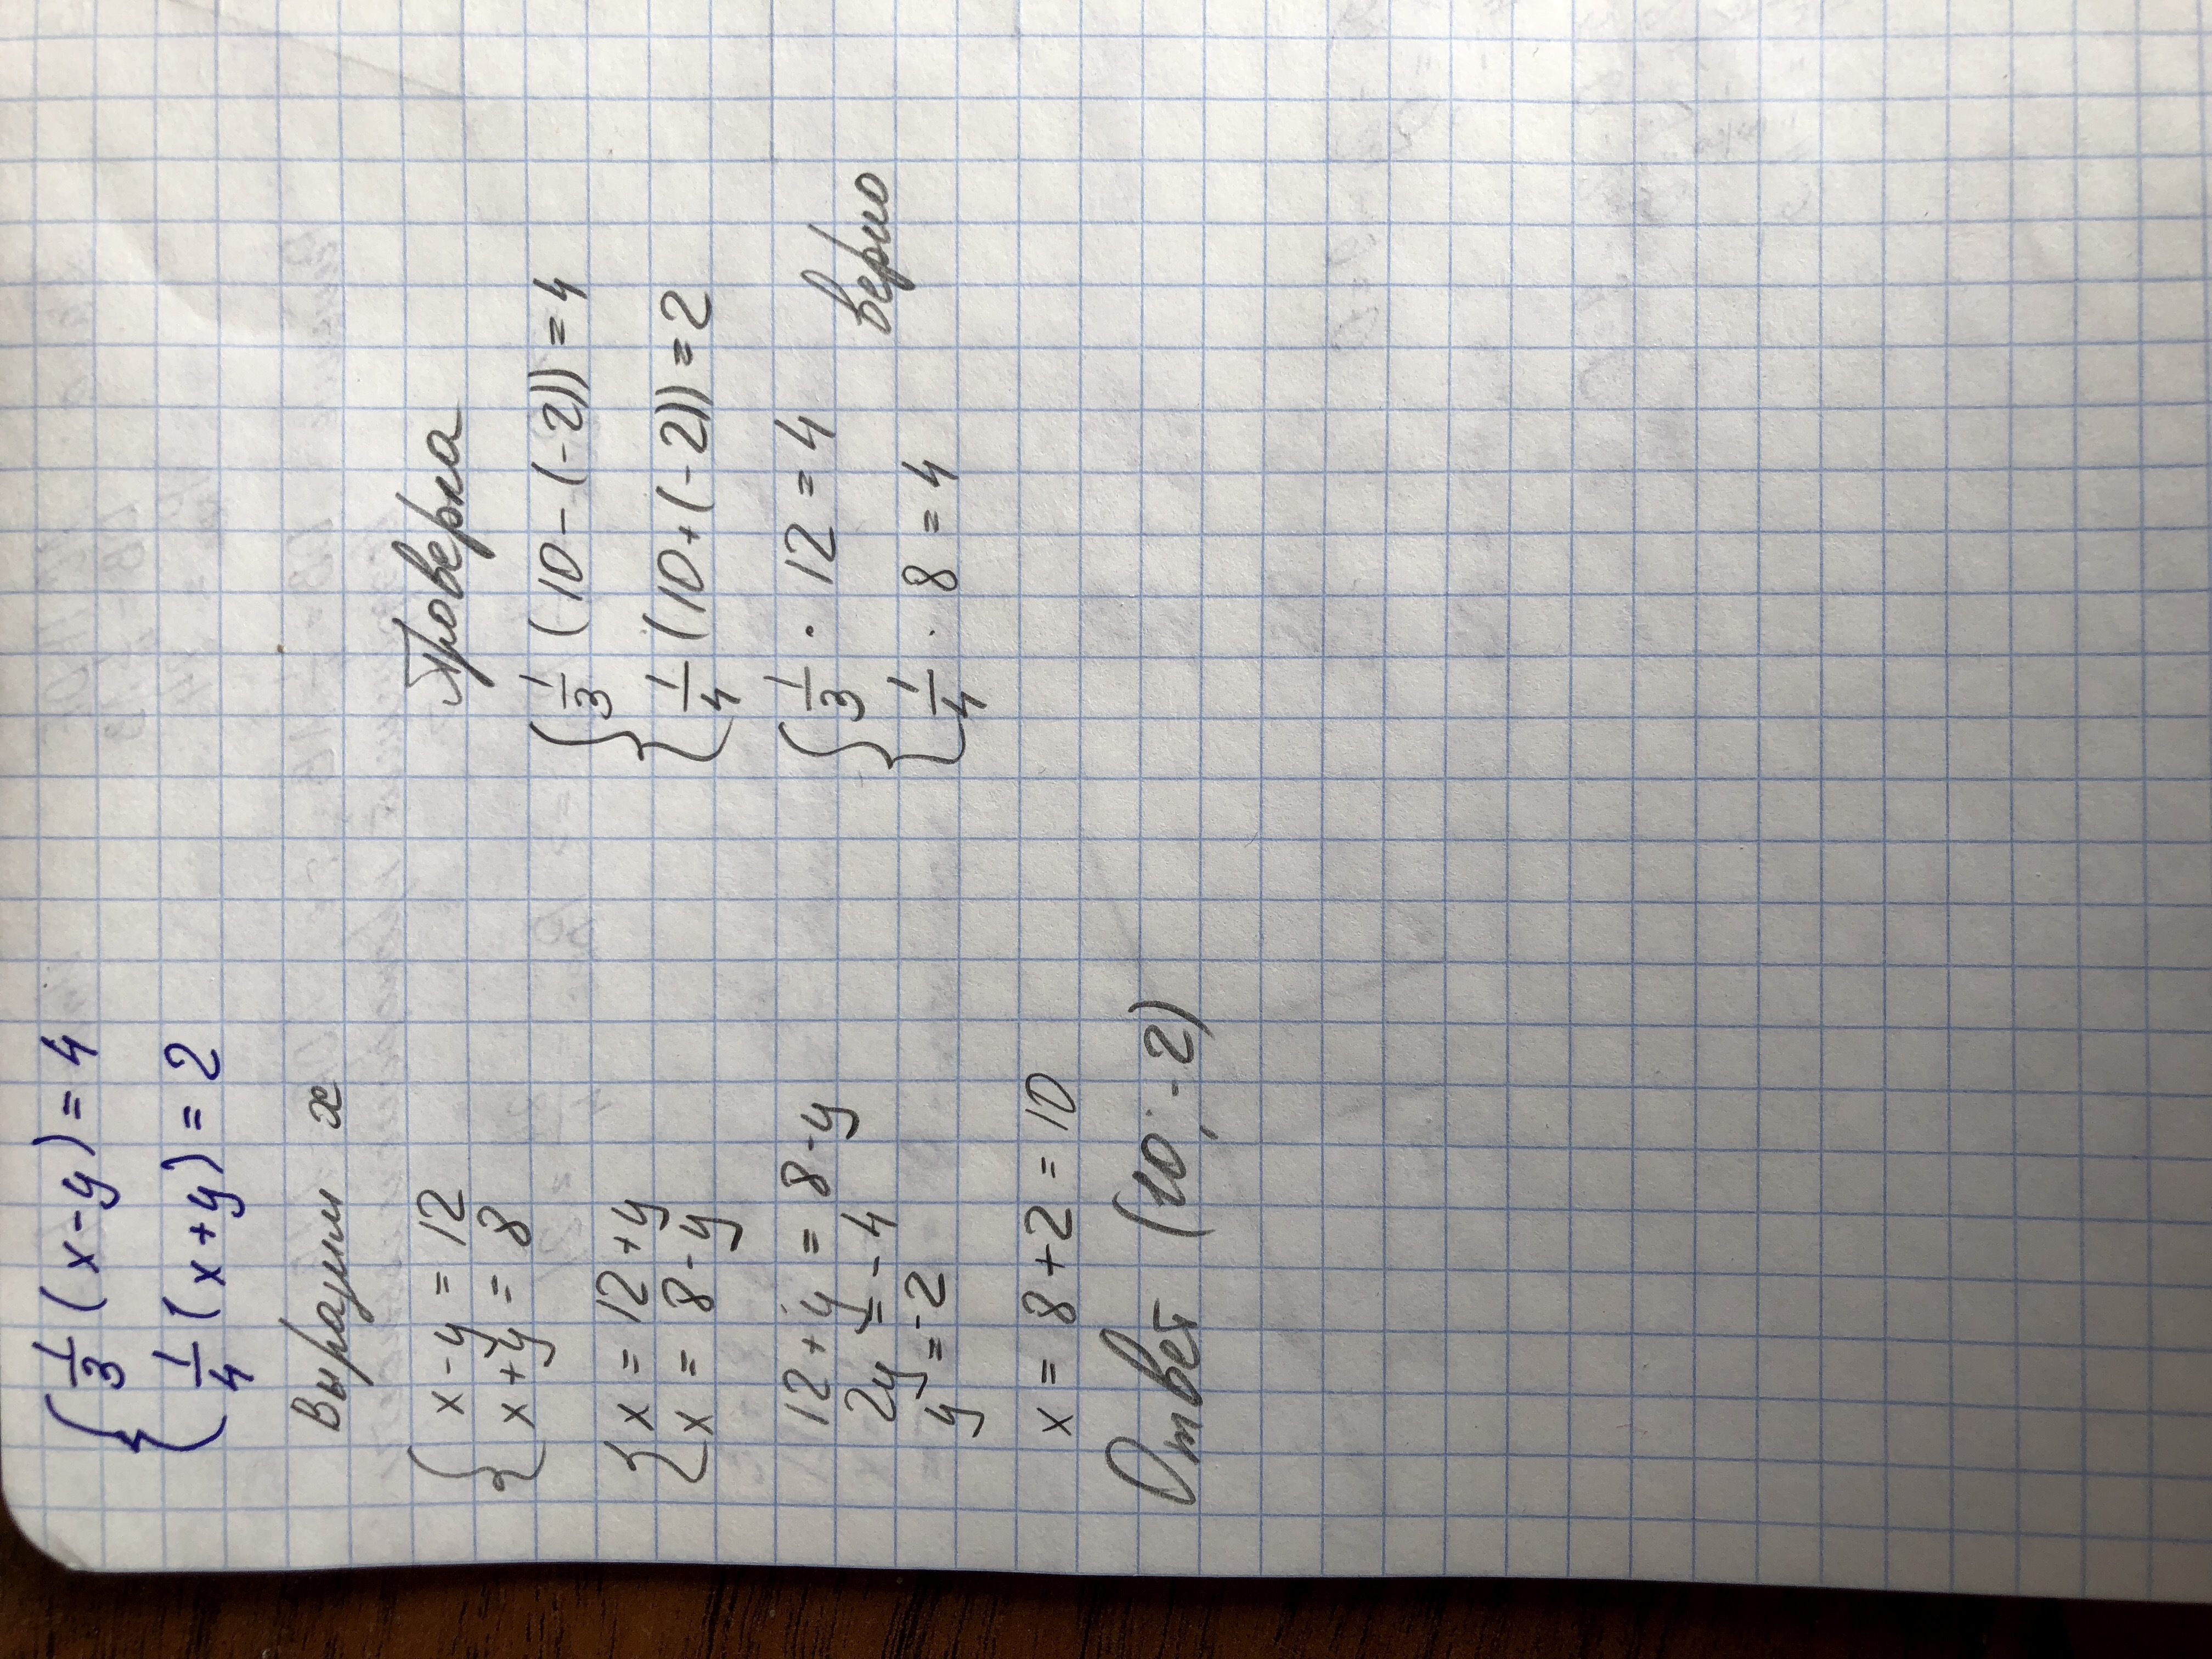 { 1/3 (x-y) = 4
1/4 (x+y) = 2
Выразим x
{ x-y = 12
x+y = 8
{ x = 12+y
x = 8-y
12+y = 8-y
2y = -4
y = -2
x = 8+2 = 10
Ответ (10; -2)
Проверка
{ 1/3 (10-(-2)) = 4
1/4 (10+(-2)) = 2
{ 1/3 · 12 = 4
1/4 · 8 = 4
верно